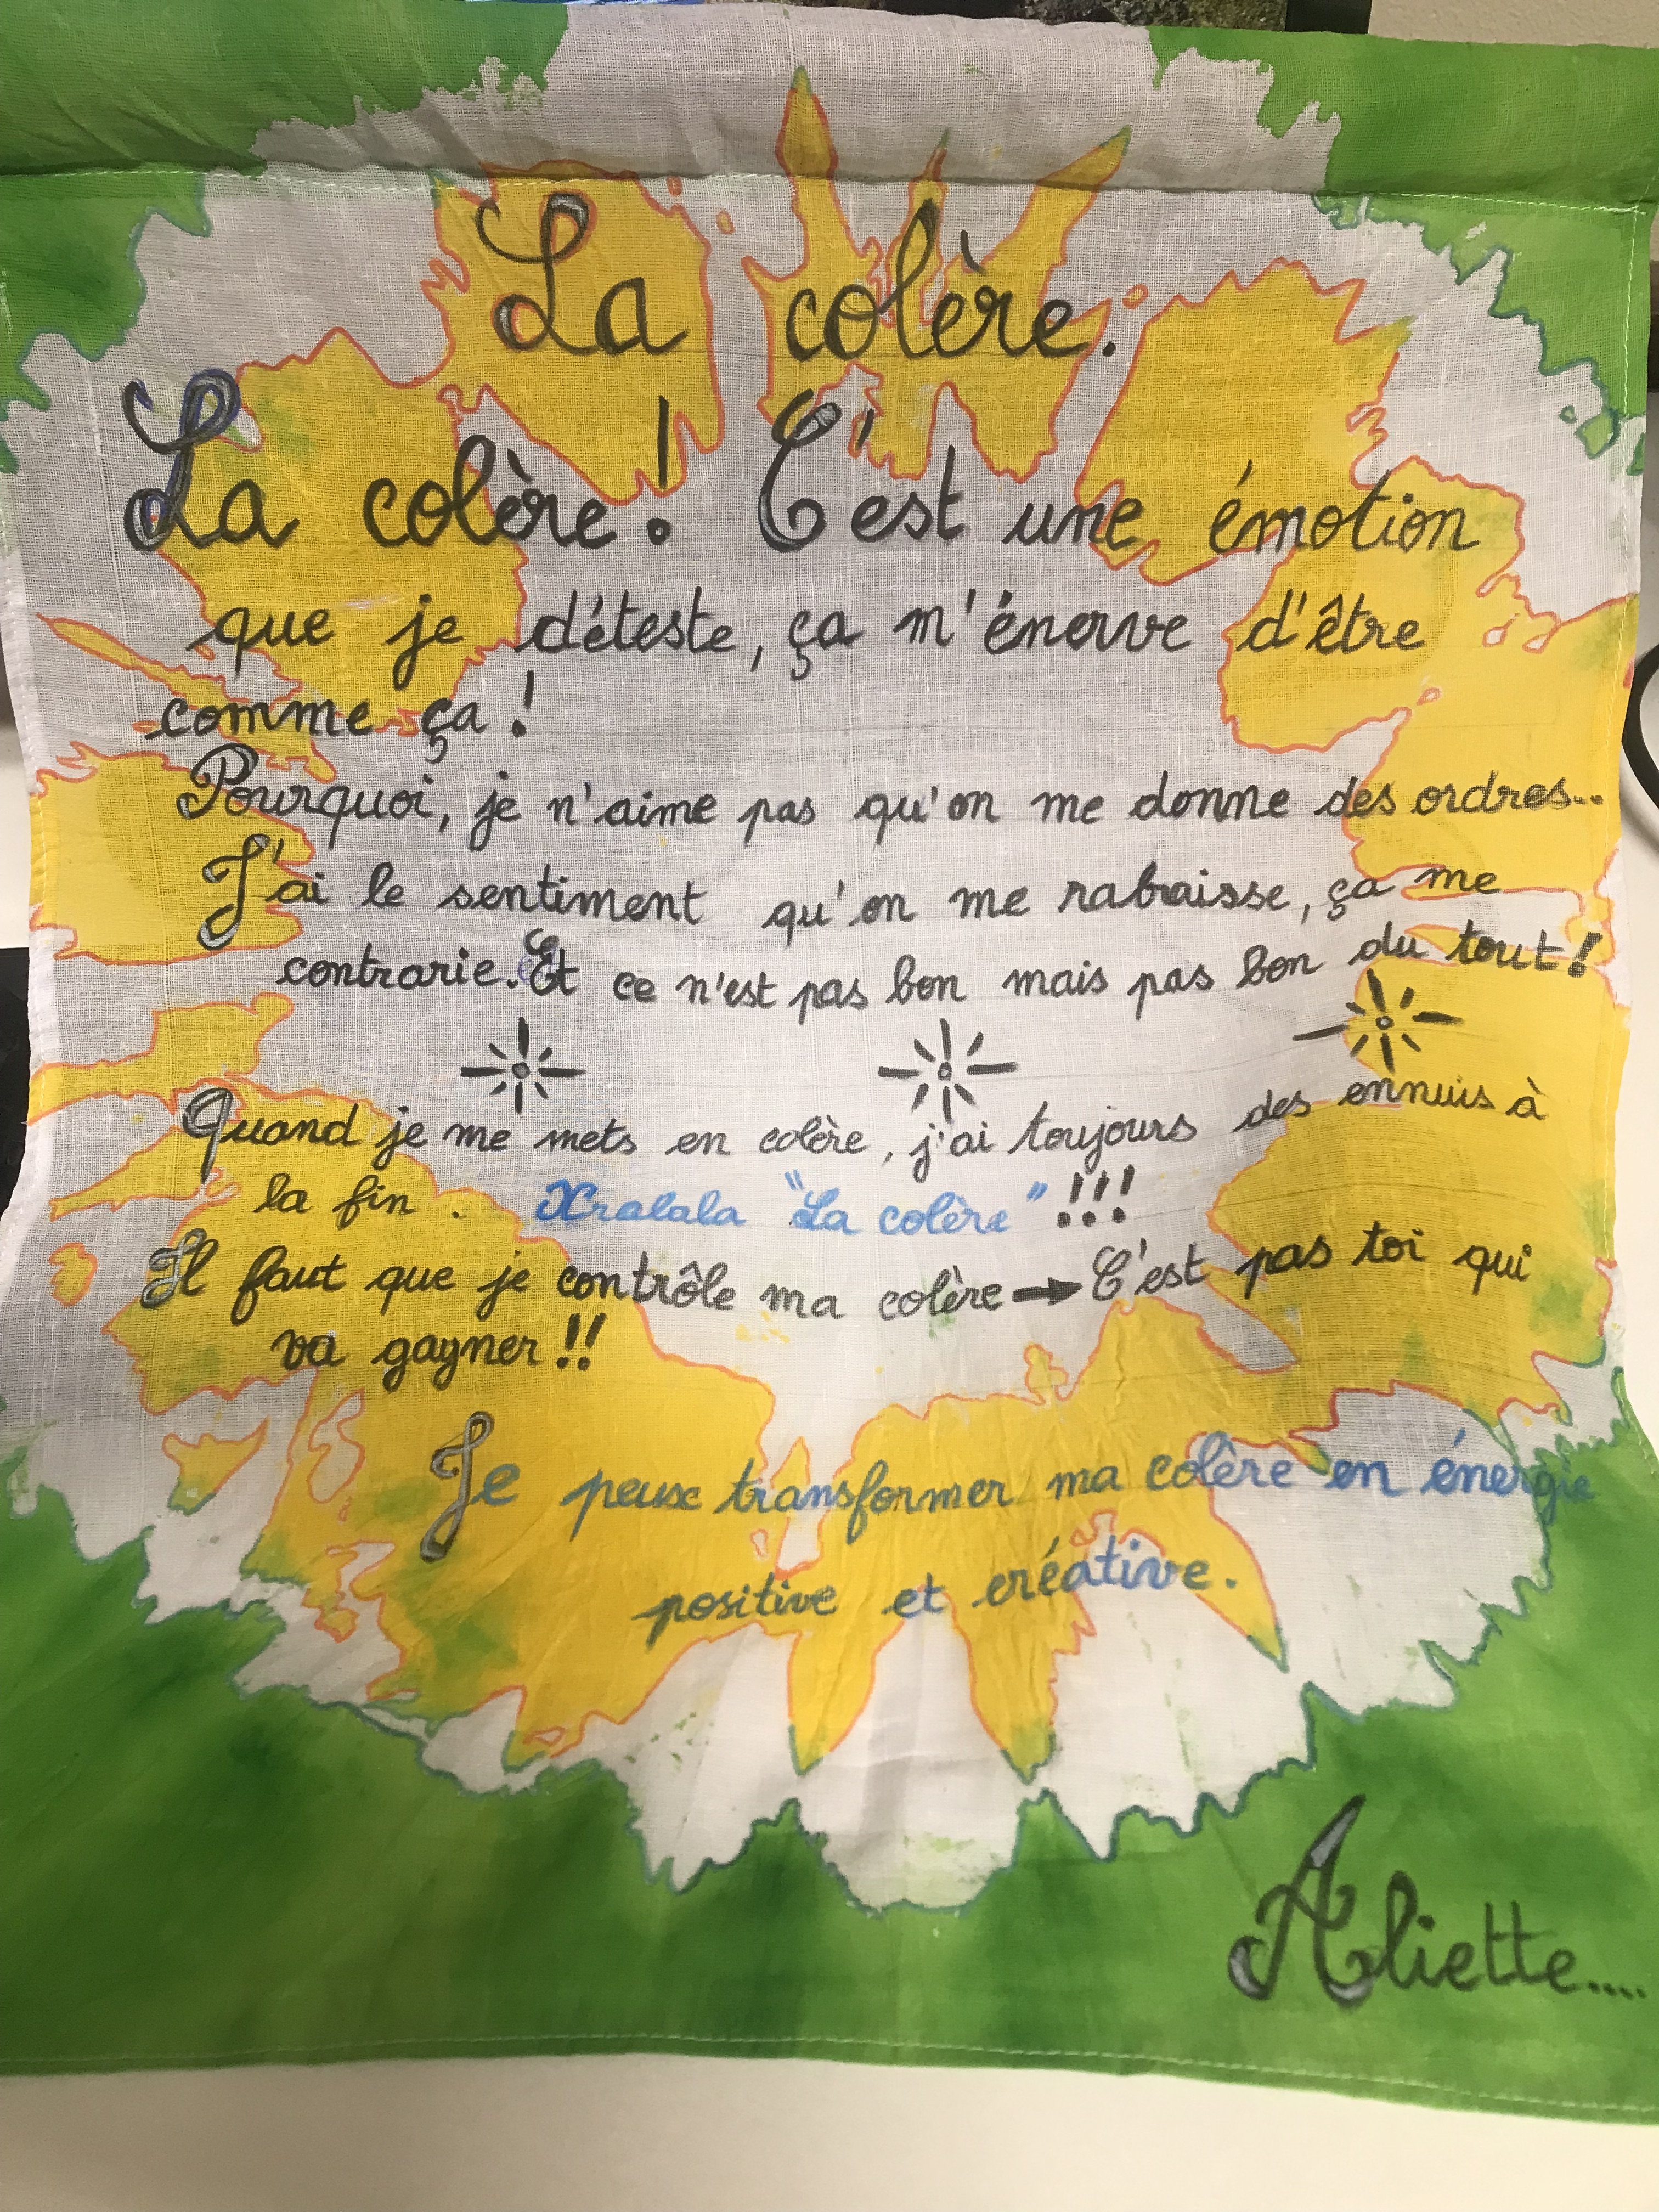 La colère.
La colère ! C'est une émotion
que je déteste, ça m'énerve d'être
comme ça !
Pourquoi, je n'aime pas qu'on me donne des ordres...
J'ai le sentiment qu'on me rabaisse, ça me
contrarie. Et ce n'est pas bon mais pas bon du tout !
Quand je me mets en colère, j'ai toujours des ennuis à
la fin. Tralala "La colère" !!!
Il faut que je contrôle ma colère → C'est pas toi qui
va gagner !!
Je peux transformer ma colère en énergie
positive et créative.
Aliette....